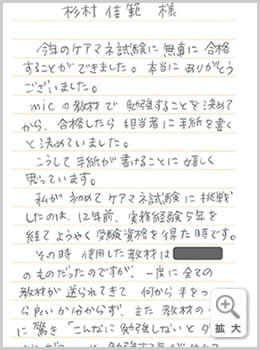 杉村佳範 様
今年のケアマネ試験に無事に合格
することができました。本当にありがとう
ございました。
micの教材で勉強することを決めて
から、合格したら担当者に手紙を書く
と決めていました。
こうして手紙が書けることに嬉しく
思っています。
私が初めてケアマネ試験に挑戦
したのは、12年前、実務経験5年を
経てようやく受験資格を得た時です。
その時 使用した教材は
のものだったのですが、一度に全ての
教材が送られてきて 何から手をつ
ら良いか分からず、また教材の
に驚き「こんなに勉強しないとダ
拡大